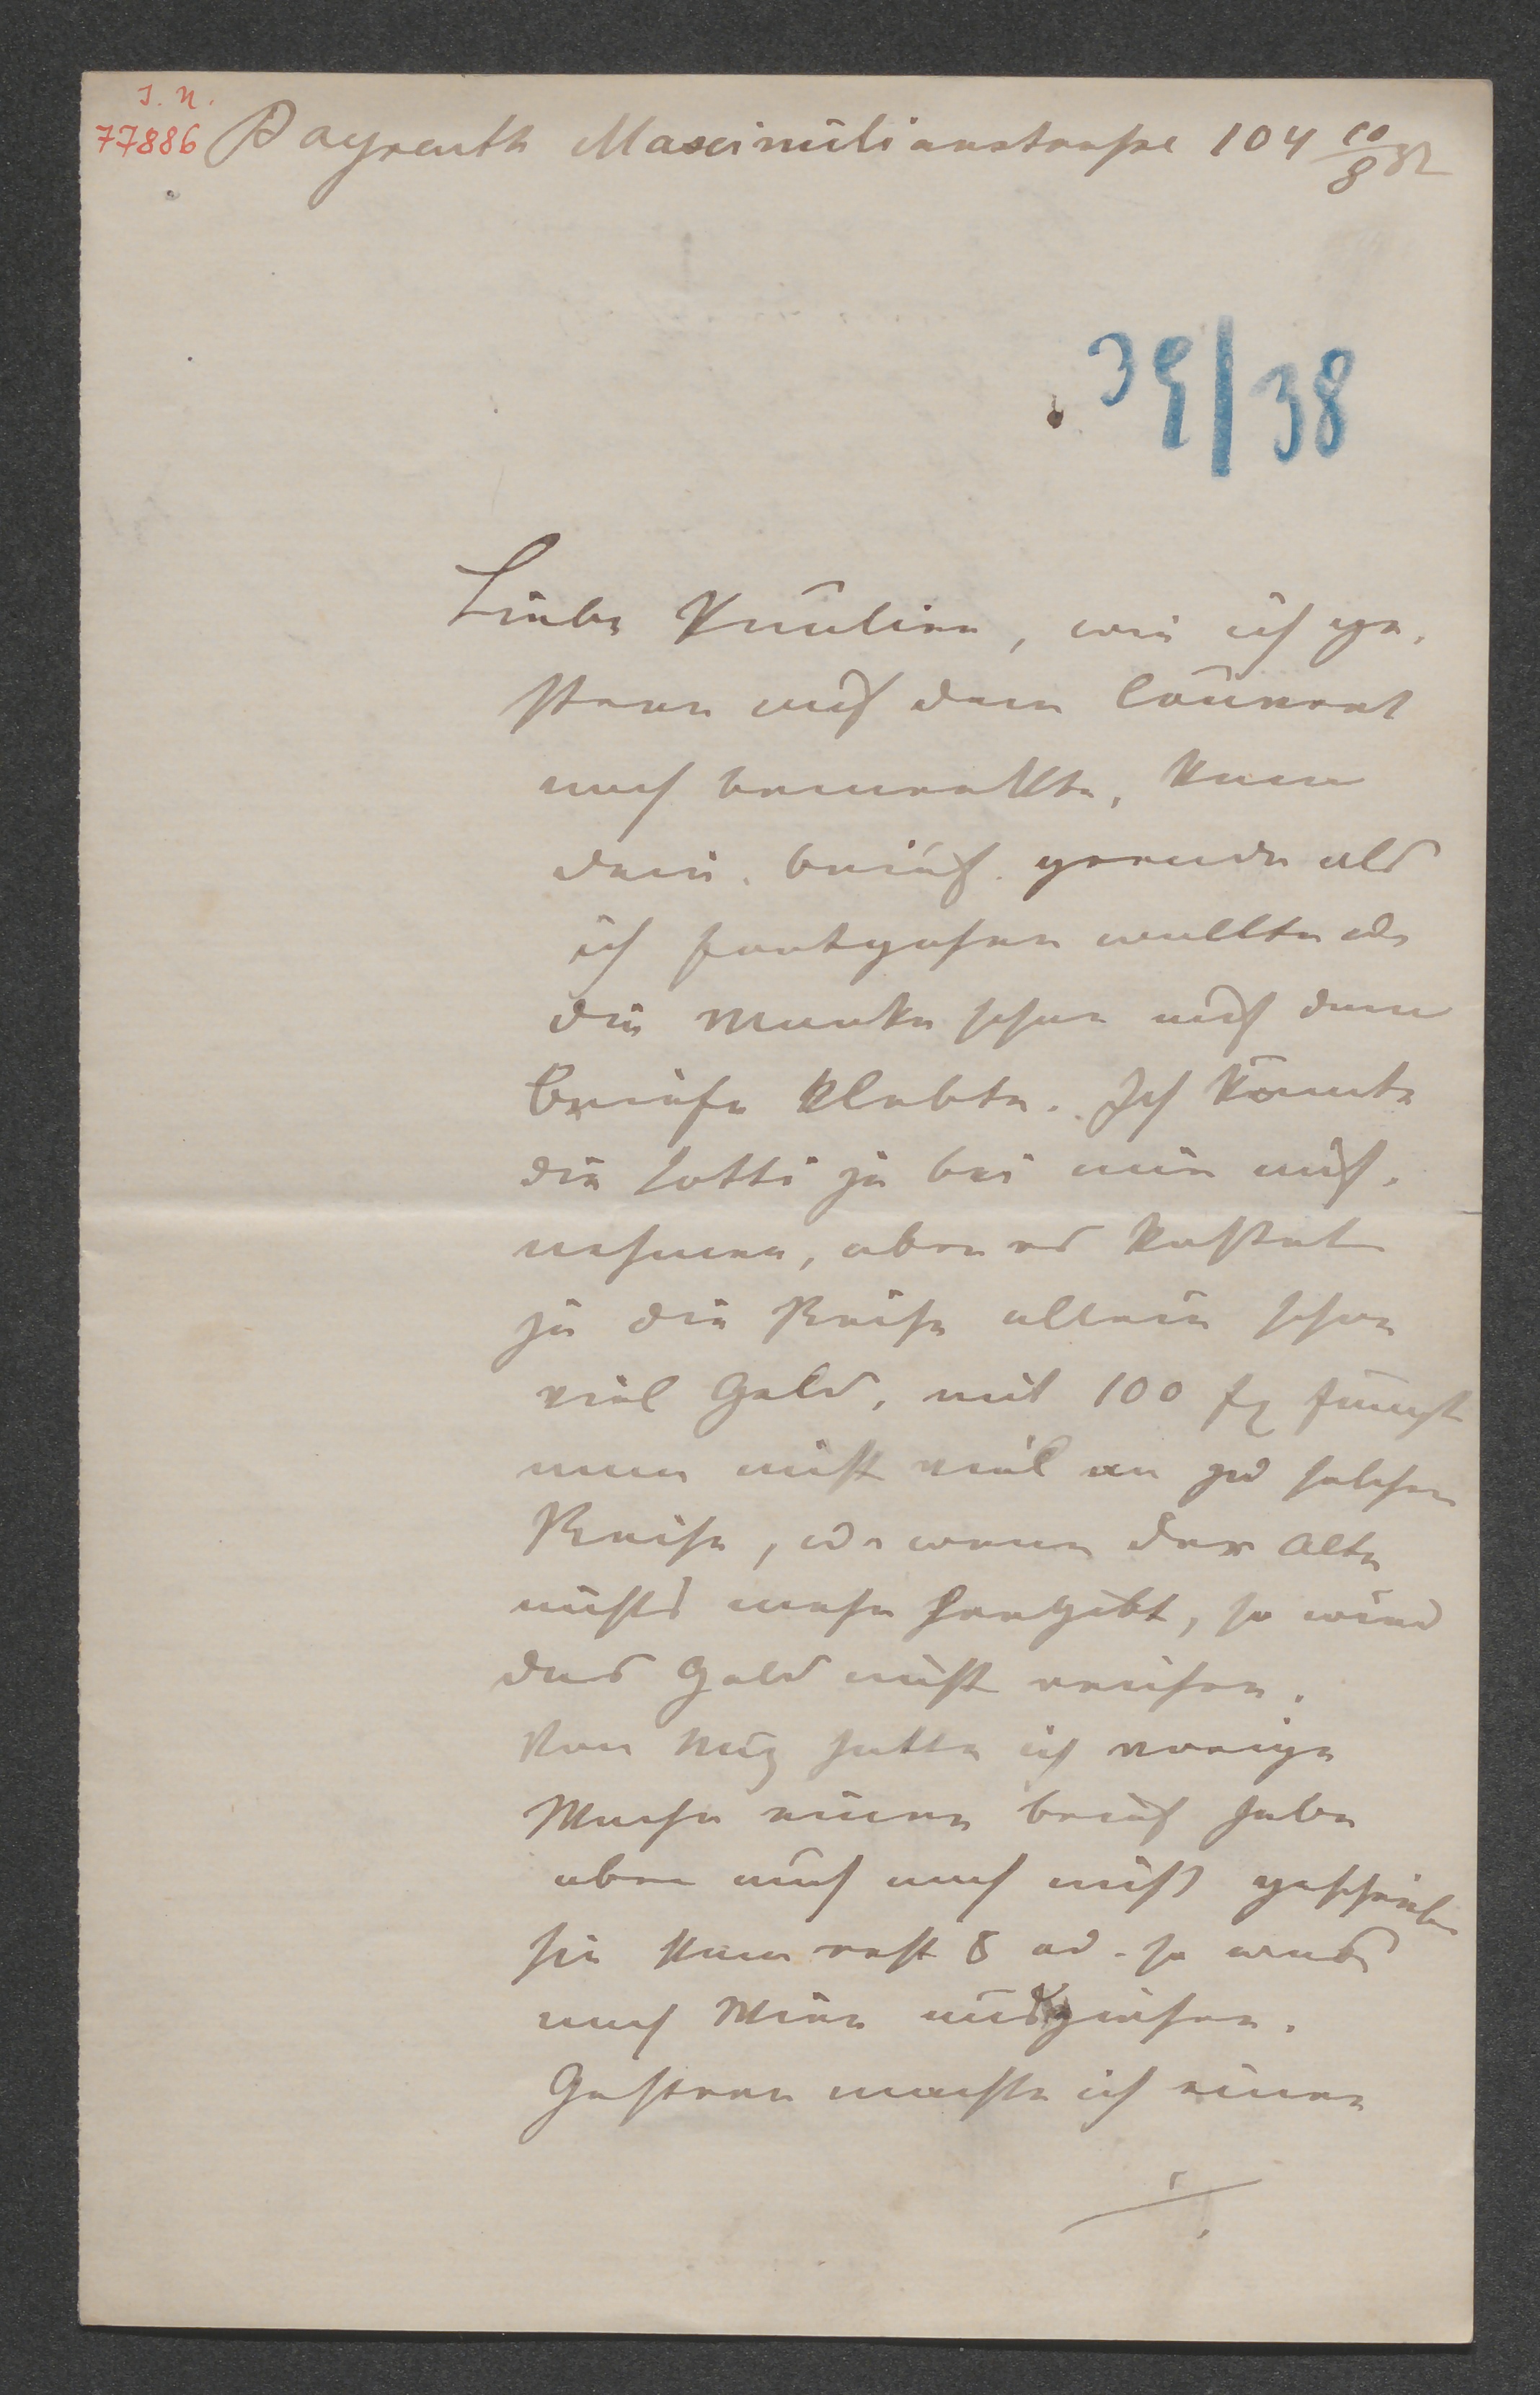 I. N.
77886 Bayreuth Maximilianstraße 104 10/8 82
39/38
Liebe Pauline, wie ich ge-
stern auf dem Couvert
noch bemerkte, kam
dein brief gerade als
ich fortgehen wollte u
die Marke schon auf dem
Briefe klebte. Ich könnte
die Lotti ja bei mir auf-
nehmen, aber es kostet
ja die Reise allein schon
viel Geld, mit 100 fl fängt
man nicht viel an zu solcher
Reise, u wenn der Alte
nichts mehr hergibt, so wird
das Geld nicht reichen.
Von hatte ich vorige
Woche einen brief habe
aber auch noch nicht geschrieben
sie kann erst 8 od. so
nach Wien
Gestern machte ich einen
./.